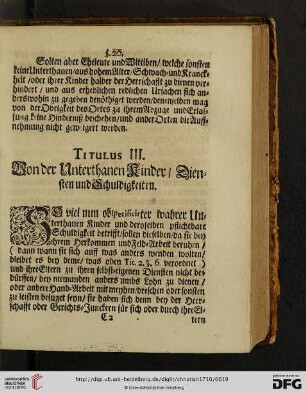 §. 20.
Solten aber Eheleute und Wittiben/ welche sonsten
keine Unterthanen/ aus hohem Alter/ Schwach- und Kranck-
heit/ oder ihrer Kinder halber der Herrschafft zu dienen ver-
hindert/ und aus erheblichen redlichen Ursachen sich an-
derswohin zu gegeben benöthiget werden/ denenselben mag
von der Obrigkeit des Ortes zu ihrem Abzuge und Erlas-
sung keine Hindernüß beschehen/ und ander Orten die Auff-
nehmung nicht gewegert werden.
TITULUS III.
Von der Unterthanen Kinder/ Dien-
sten und Schuldigkeiten.
SO viel nun obspecificirter wahrer Un-
terthanen Kinder und deroselben pflichtbare
Schuldigkeit betrifft/ sollen dieselben/ da sie bey
ihrem Herkommen und Feld-Arbeit beruhen/
dann wann sie sich auff was anders wenden wolten/
bleibet es bey deme/ was oben Tit. 2. §. 6. verordnet)
und ihre Eltern zu ihren selbsteigenen Diensten nicht be-
dürffen/ bey niemanden anders umbs Lohn zu dienen/
oder andere Hand-Arbeit mit meyhen/ dreschen oder sonsten
zu leisten befuget seyn/ sie haben sich denn bey der Herr-
schafft oder Gerichts-Junckern für sich oder durch ihre El-
C 2
tern
http://digi.ub.uni-heidelberg.de/diglit/christian1710/0019
© Universitätsbibliothek Heidelberg
gefördert durch die
DFG